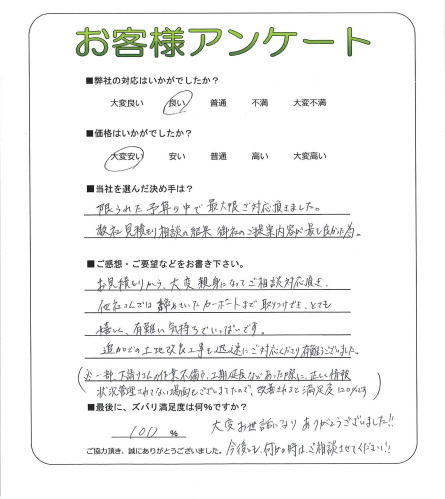 お客様アンケート
■弊社の対応はいかがでしたか?
大変良い 良い 普通 不満 大変不満
■価格はいかがでしたか?
大変安い 安い 普通 高い 大変高い
■当社を選んだ決め手は?
限られた予算の中で最大限ご対応頂きました。
数社見積もり相談の結果 御社のご提案内容が最も良かった為。
■ご感想・ご要望などをお書き下さい。
お見積もりから、大変親身になってご相談対応頂き、
他社さんでは諦めていたカーポートまで取りつけでき、とても
嬉しく、有難い気持ちでいっぱいです。
追加での土地改良工事も迅速にご対応くださり有難うございました。
(※一部、下請けさんの作業不備や、工期延長などあった際に、正しい情報
状況管理されてない場面もございましたので、改善されると満足度120%です)
■最後に、ズバリ満足度は何%ですか?
100 %
大変お世話になり ありがとうございました!!
ご協力頂き、誠にありがとうございました。
今後とも、何かの時は、ご相談させてください!!